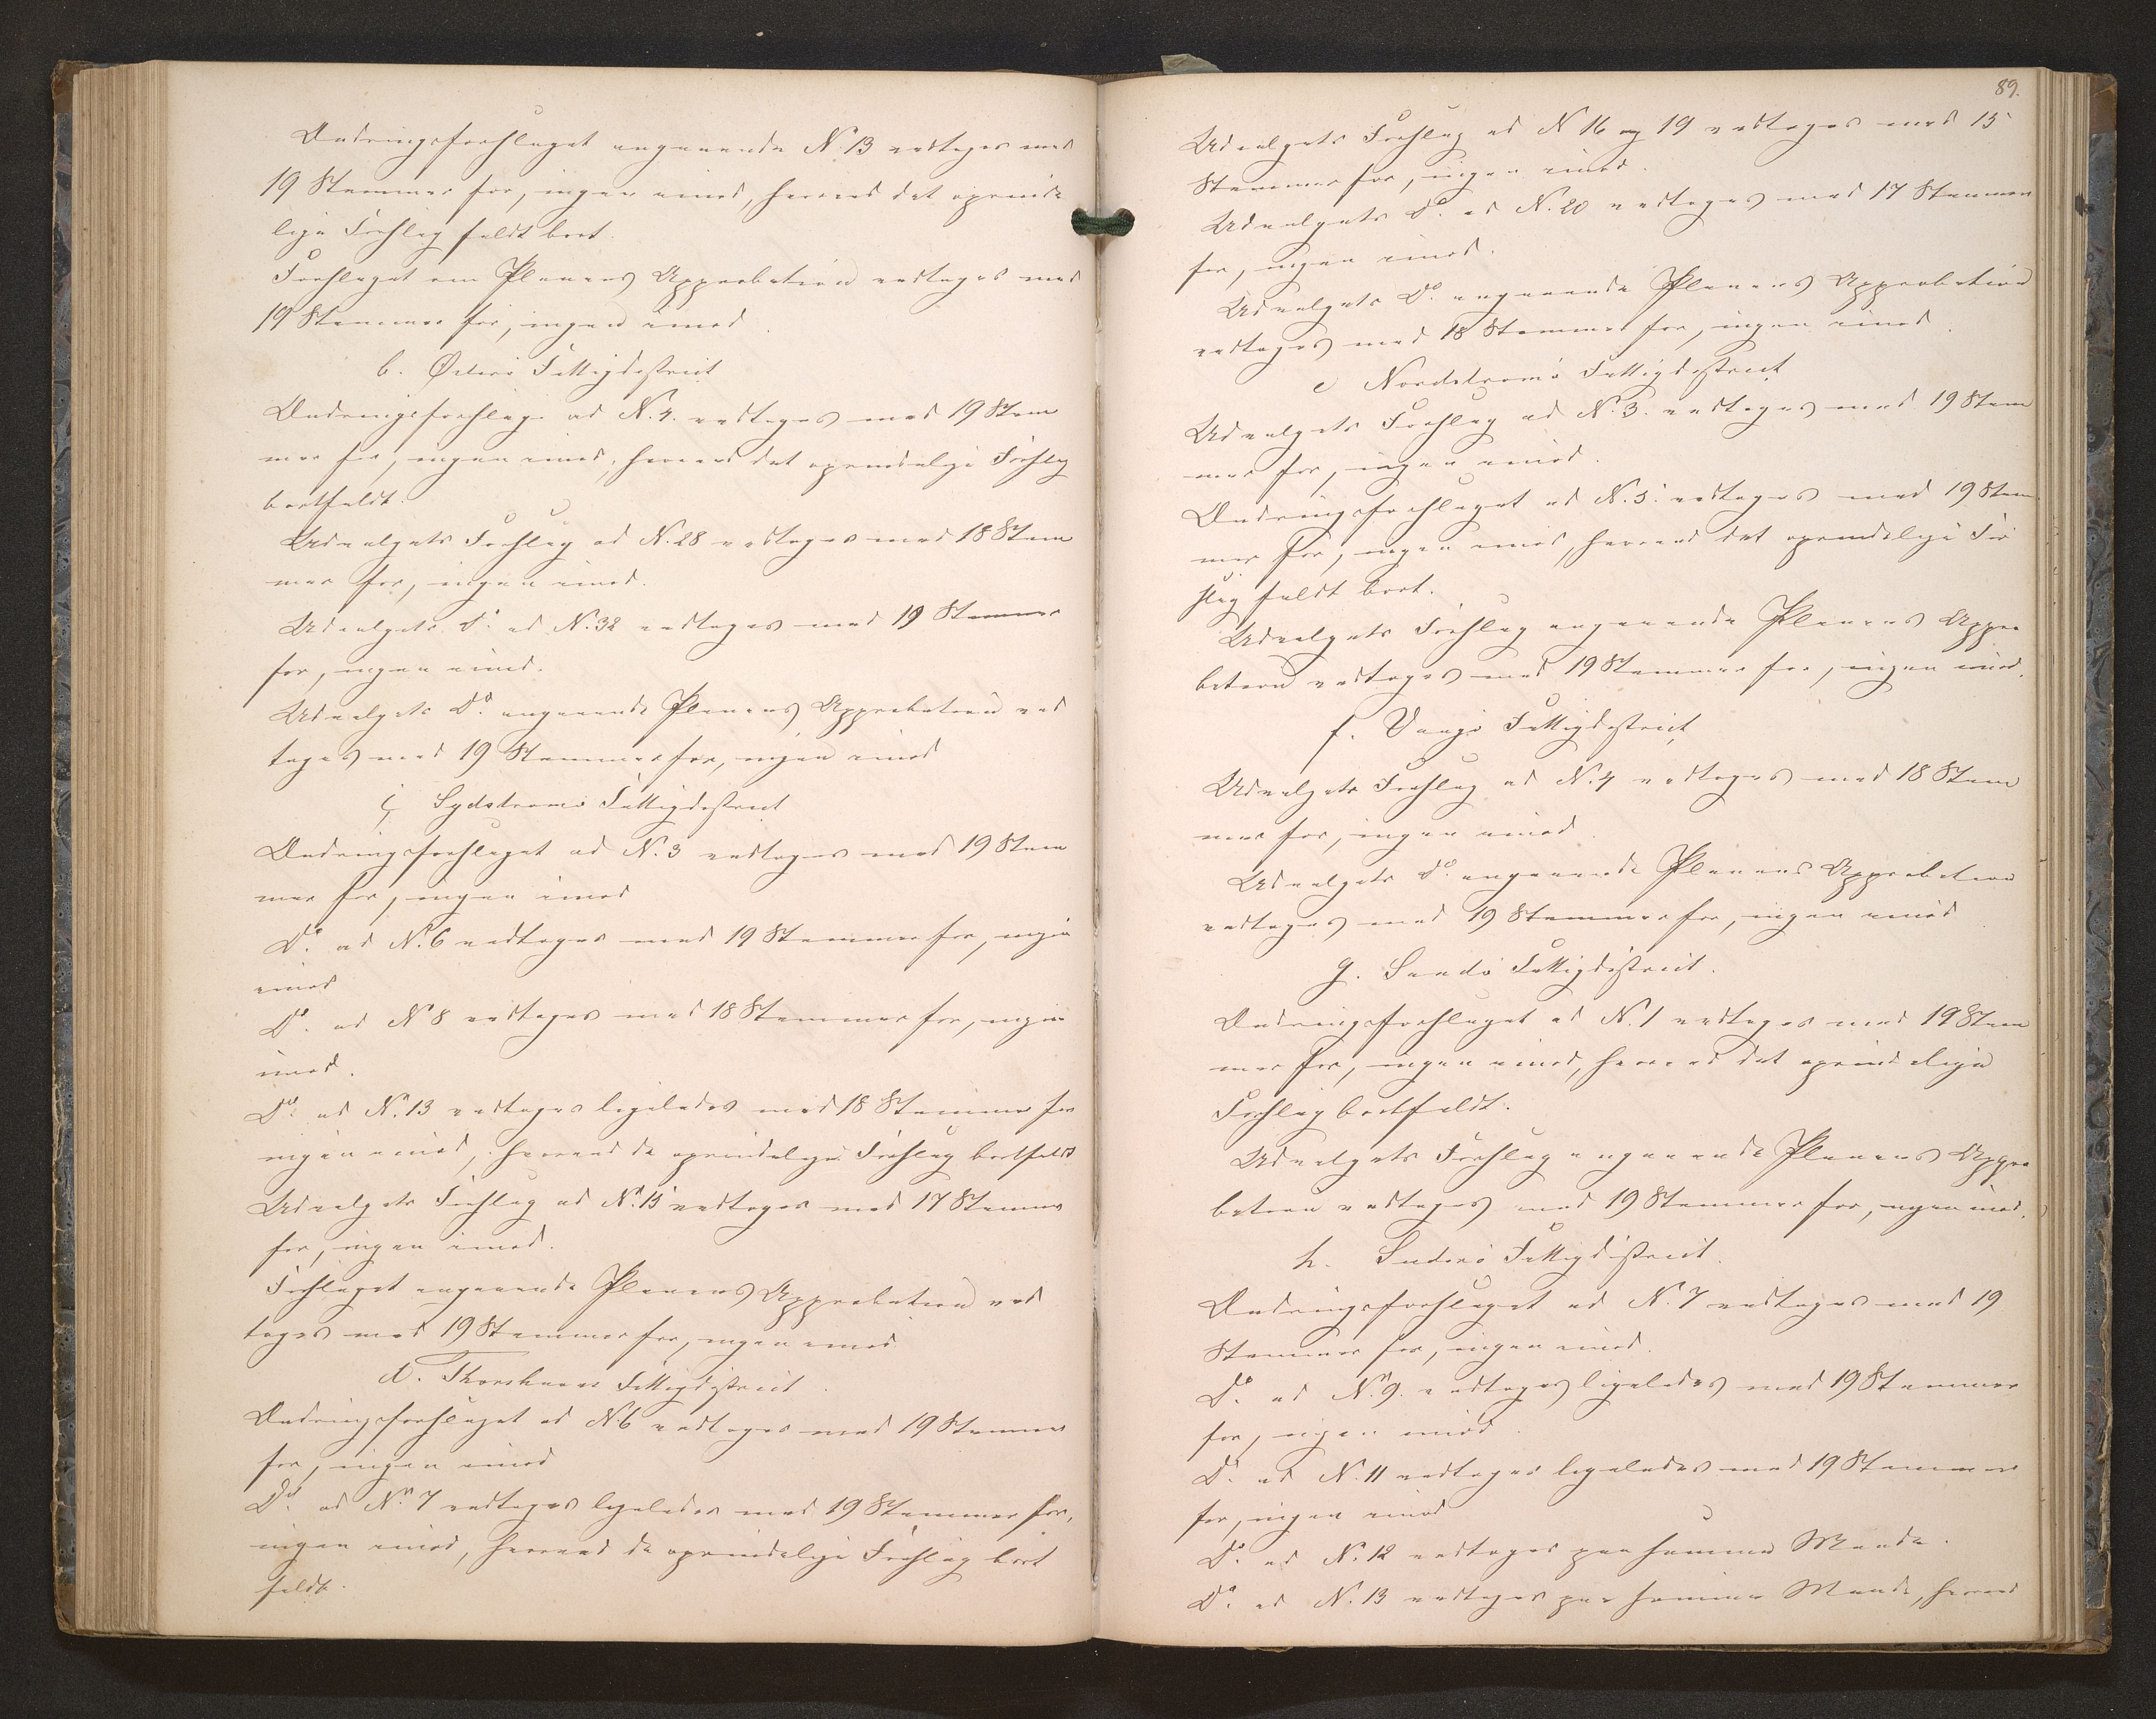 Ændringsforslaget angaaende N. 13 vedtoges med
19 Stemmer for, ingen imod, hvorved det oprinde
lige Forslag faldt bort.
Forslaget om Planens Approbation vedtoges med
19 Stemmer for, ingen imod.
b. Østerø Fattigdistrict
Ændringsforslag ad N. 4. vedtoges med 19 Stem
mer for, ingen imod, hvorved det oprindelige Forslag
bortfaldt.
Udvalgets Forslag ad N. 28 vedtoges med 18 Stem
mer for, ingen imod.
Udvalgets Do. ad N. 32 vedtoges med 19 Stemmer
for, ingen imod.
Udvalgets Do. angaaende Planens Approbation ved
toges med 19 Stemmer for, ingen imod
c. Sydstrømø Fattigdistrict
Ændringsforslaget ad N. 3 vedtoges med 19 Stem
mer for, ingen imod
Do. ad No. 6 vedtoges med 19 Stemmer for, ingen
imod
Do. ad No 8 vedtoges med 18 Stemmer for, ingen
imod.
Do. ad No. 13 vedtoges ligeledes med 18 Stemmer for
ingen imod, hvorved de oprindelige Forslag bortfaldt
Udvalgets Forslag ad No. 15 vedtoges med 17 Stemmer
for, ingen imod.
Forslaget angaaende Planens Approbation ved
toges med 19 Stemmer for, ingen imod
d. Thorshavns Fattigdistrict.
Ændringsforslaget ad N. 6 vedtoges med 19 Stemmer
for, ingen imod
Do. ad No. 7 vedtoges ligeledes med 19 Stemmer for,
ingen imod, hvorved de oprindelige Forslag bort
faldt.
89.
Udvalgets Forslag ad N 16 og 19 vedtoges med 15
Stemmer for, ingen imod.
Udvalgets Do. ad N. 20 vedtoges med 17 Stemmer
for, ingen imod.
Udvalgets Do. angaaende Planens Approbation
vedtoges med 18 Stemmer for, ingen imod.
e Nordstrømø Fattigdistrict
Udvalgets Forslag ad N. 3. vedtoges med 19 Stem
mer for, ingen imod.
Ændringsforslaget ad N. 5. vedtoges med 19 Stem
mer for, ingen imod, hvorved det oprindelige For
slag faldt bort.
Udvalgets Forslag angaaende Planens Appro
bation vedtoges med 19 Stemmer for, ingen imod.
f. Vaagø Fattigdistrict
Udvalgets Forslag ad N. 4 vedtoges med 18 Stem
mer for, ingen imod.
Udvalgets Do. angaaende Planens Approbation
vedtoges med 19 Stemmer for, ingen imod
g. Sandø Fattigdistrict.
Ændringsforslaget ad N. 1 vedtoges med 19 Stem
mer for, ingen imod, hvorved det oprindelige
Forslag bortfaldt.
Udvalgets Forslag angaaende Planens Appro
bation vedtoges med 19 Stemmer for, ingen imod.
h. Suderø Fattigdistrict.
Ændringsforslaget ad N. 7 vedtoges med 19
Stemmer for, ingen imod.
Do. ad No. 9. vedtoges ligeledes med 19 Stemmer
for, ingen imod.
Do. ad N. 11 vedtoges ligeledes med 19 Stemmer
for, ingen imod
Do. ad N. 12 vedtoges paa samme Maade.
Do. ad N. 13 vedtoges paa samme Maade, hvorved